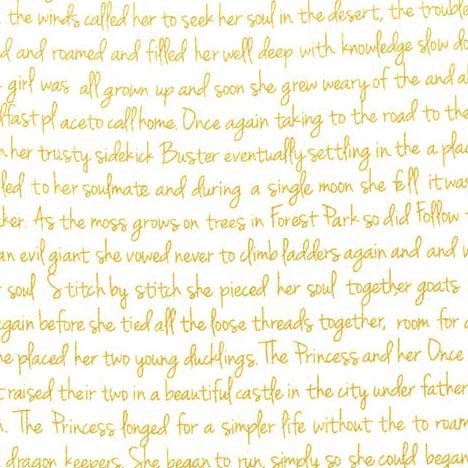 the winds called her to seek her soul in the desert, the trouble
d and roamed and filled her well deep with knowledge slow do
girl was all grown up and soon she grew weary of the and al
lfast pl aceto call home. Once again taking to the road to the
n her trusty sidekick Buster eventually settling in the a plac
led to her soulmate and during a single moon she fell it was
ker. As the moss grows on trees in Forest Park so did Follow
an evil giant she vowed never to climb ladders again and and w
soul Stitch by stitch she pieced her soul together goats
gain before she tied all the loose threads together, room for a
he placed her two young ducklings. The Princess and her Once
t raised their two in a beautiful castle in the city under father
n. The Princess longed for a simpler life without the to roam
dragon keepers. She began to run, simply so she could began